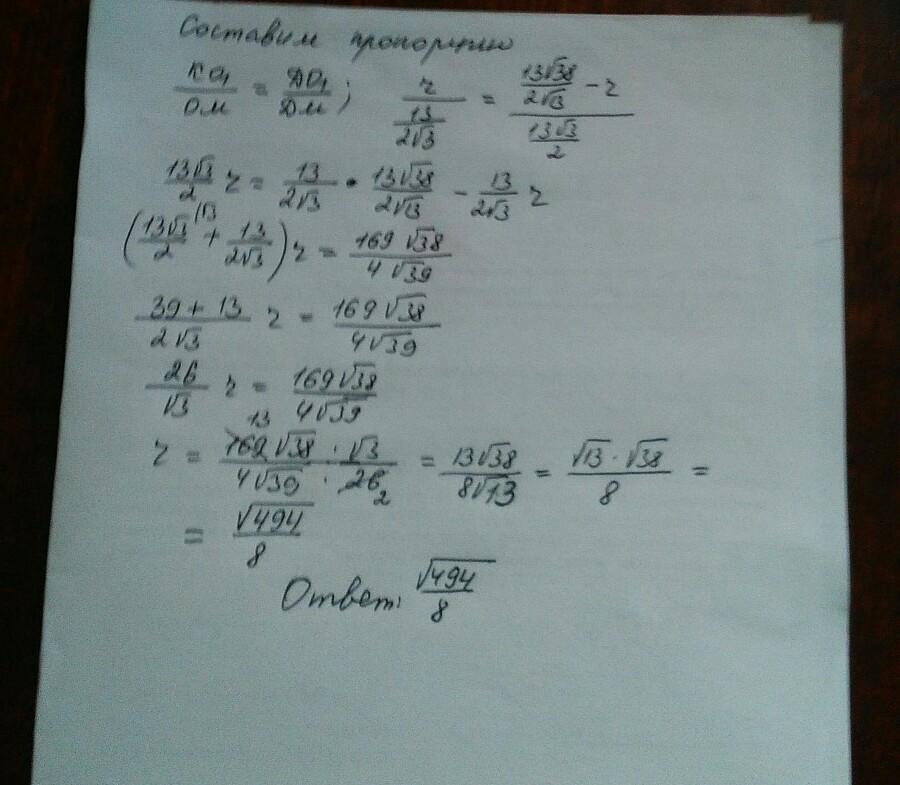 Составим пропорцию
KO₁/OM = DO₁/DM; r/(13/(2√3)) = (13√38/(2√3) − r)/(13√3/2)
13√3/2 r = 13/(2√3) · 13√38/(2√3) − 13/(2√3) r
(13√3/2 + 13/(2√3)) r = 169√38/(4√39)
(39 + 13)/(2√3) r = 169√38/(4√39)
26/√3 r = 169√38/(4√39)
r = (169√38 · √3)/(4√39 · 26) = 13√38/(8√13) = √13·√38/8 =
= √494/8
Ответ: √494/8